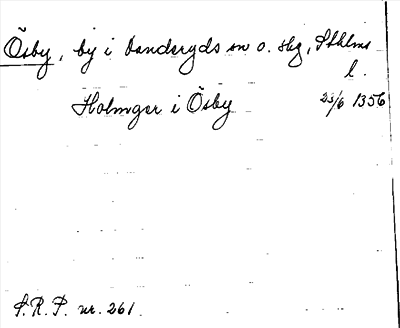 Ösby, by i Danderyds sn o. skg, Sthlms
l.
Holmger i Ösby 25/6 1356
S.R.P. nr. 261.